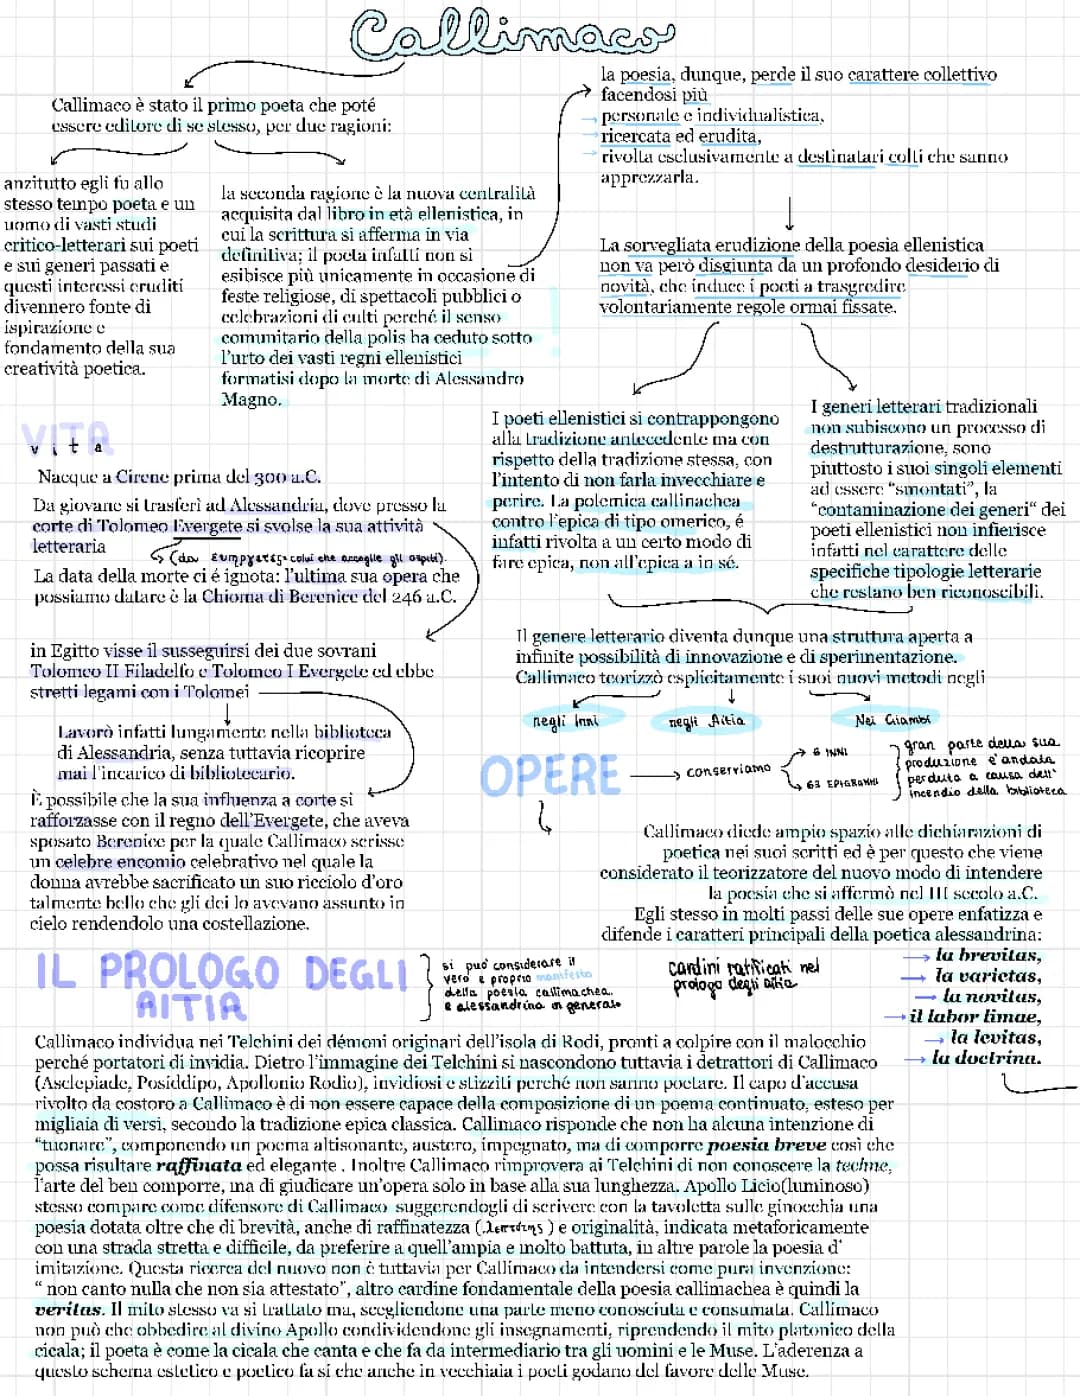 Callimaco
Callimaco è stato il primo poeta che poté
essere editore di se stesso, per due ragioni:
anzitutto egli fu allo
stesso tempo poeta e un
uomo di vasti studi
critico-letterari sui poeti
e sui generi passati e
questi interessi eruditi
divennero fonte di
ispirazione e
fondamento della sua
creatività poetica.
la seconda ragione è la nuova centralità
acquisita dal libro in età ellenistica, in
cui la scrittura si afferma in via
definitiva; il poeta infatti non si
esibisce più unicamente in occasione di
feste religiose, di spettacoli pubblici o
celebrazioni di culti perché il senso
comunitario della polis ha ceduto sotto
l'urto dei vasti regni ellenistici
formatisi dopo la morte di Alessandro
Magno.
la poesia, dunque, perde il suo carattere collettivo
facendosi più
personale e individualistica,
ricercata ed erudita,
rivolta esclusivamente a destinatari colti che sanno
apprezzarla.
La sorvegliata erudizione della poesia ellenistica
non va però disgiunta da un profondo desiderio di
novità, che induce i poeti a trasgredire
volontariamente regole ormai fissate.
I poeti ellenistici si contrappongono
alla tradizione antecedente ma con
rispetto della tradizione stessa, con
l'intento di non farla invecchiare e
perire. La polemica callinachea
contro l'epica di tipo omerico, é
infatti rivolta a un certo modo di
fare epica, non all'epica a in sé.
I generi letterari tradizionali
non subiscono un processo di
destrutturazione, sono
piuttosto i suoi singoli elementi
ad essere “smontati”, la
“contaminazione dei generi” dei
poeti ellenistici non infierisce
infatti nel carattere delle
specifiche tipologie letterarie
che restano ben riconoscibili.
VITA
vita
Nacque a Cirene prima del 300 a.C.
Da giovane si trasferì ad Alessandria, dove presso la
corte di Tolomeo Evergete si svolse la sua attività
letteraria
colui che accoglie gli ospiti).
La data della morte ci é ignota: l'ultima sua opera che
possiamo datare è la Chioma di Berenice del 246 a.C.
in Egitto visse il susseguirsi dei due sovrani
Tolomeo II Filadelfo e Tolomeo I Evergete ed ebbe
stretti legami con i Tolomei
Lavorò infatti lungamente nella biblioteca
di Alessandria, senza tuttavia ricoprire
mai l'incarico di bibliotecario.
È possibile che la sua influenza a corte si
rafforzasse con il regno dell'Evergete, che aveva
sposato Berenice per la quale Callimaco scrisse
un celebre encomio celebrativo nel quale la
donna avrebbe sacrificato un suo ricciolo d'oro
talmente bello che gli dei lo avevano assunto in
cielo rendendolo una costellazione.
Il genere letterario diventa dunque una struttura aperta a
infinite possibilità di innovazione e di sperimentazione.
Callimaco teorizzò esplicitamente i suoi nuovi metodi negli
negli Inni
negli Aitia
Nei Giambi
OPERE
conserviamo
6 INNI
63 EPIGRAMMI
gran parte della sua
produzione e' andata
perduta a causa dell'
incendio della biblioteca
Callimaco diede ampio spazio alle dichiarazioni di
poetica nei suoi scritti ed è per questo che viene
considerato il teorizzatore del nuovo modo di intendere
la poesia che si affermò nel III secolo a.C.
Egli stesso in molti passi delle sue opere enfatizza e
difende i caratteri principali della poetica alessandrina:
la brevitas,
la varietas,
la novitas,
il labor limae,
la levitas,
la doctrina.
IL PROLOGO DEGLI
AITIA
si puo' considerare il
vero e proprio manifesto
della poesia callimachea
e alessandrina in generale
cardini ratificati nel
prologo degli aitia
Callimaco individua nei Telchini dei démoni originari dell'isola di Rodi, pronti a colpire con il malocchio
perché portatori di invidia. Dietro l'immagine dei Telchini si nascondono tuttavia i detrattori di Callimaco
(Asclepiade, Posiddipo, Apollonio Rodio), invidiosi e stizziti perché non sanno poetare. Il capo d'accusa
rivolto da costoro a Callimaco è di non essere capace della composizione di un poema continuato, esteso per
migliaia di versi, secondo la tradizione epica classica. Callimaco risponde che non ha alcuna intenzione di
“tuonare”, componendo un poema altisonante, austero, impegnato, ma di comporre poesia breve così che
possa risultare raffinata ed elegante . Inoltre Callimaco rimprovera ai Telchini di non conoscere la techne,
l'arte del ben comporre, ma di giudicare un'opera solo in base alla sua lunghezza. Apollo Licio(luminoso)
stesso compare come difensore di Callimaco suggerendogli di scrivere con la tavoletta sulle ginocchia una
poesia dotata oltre che di brevità, anche di raffinatezza (λεπτότης ) e originalità, indicata metaforicamente
con una strada stretta e difficile, da preferire a quell'ampia e molto battuta, in altre parole la poesia d'
imitazione. Questa ricerca del nuovo non è tuttavia per Callimaco da intendersi come pura invenzione:
“ non canto nulla che non sia attestato”, altro cardine fondamentale della poesia callimachea è quindi la
veritas. Il mito stesso va si trattato ma, scegliendone una parte meno conosciuta e consumata. Callimaco
non può che obbedire al divino Apollo condividendone gli insegnamenti, riprendendo il mito platonico della
cicala; il poeta è come la cicala che canta e che fa da intermediario tra gli uomini e le Muse. L'aderenza a
questo schema estetico e poetico fa si che anche in vecchiaia i poeti godano del favore delle Muse.